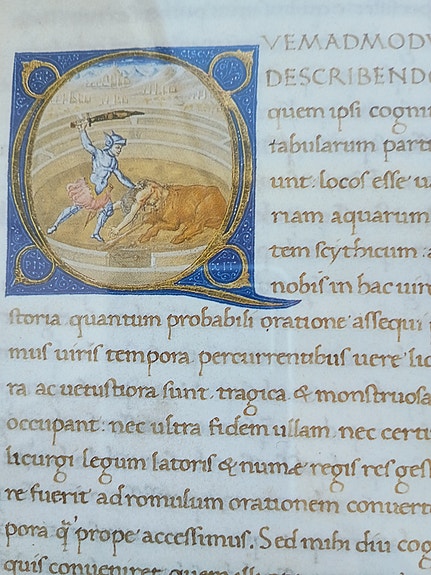 QVEMADMODV
DESCRIBENDO
quem ipsi cogni
tabularum parti
unt: locos esse
riam aquarum
tem scythicum
nobis in hac uir
storia quantum probabili oratione assequi
mus uiris tempora percurrentibus uere lic
ra ac uetustiora sunt. tragica & monstruosa
occupant: nec ultra fidem ullam. nec certi
licurgi legum latoris & numæ regis res ges
re fuerit ad romulum orationem conuerte
pora q̃ prope accessimus. Sed mihi diu cog
quis conueniret